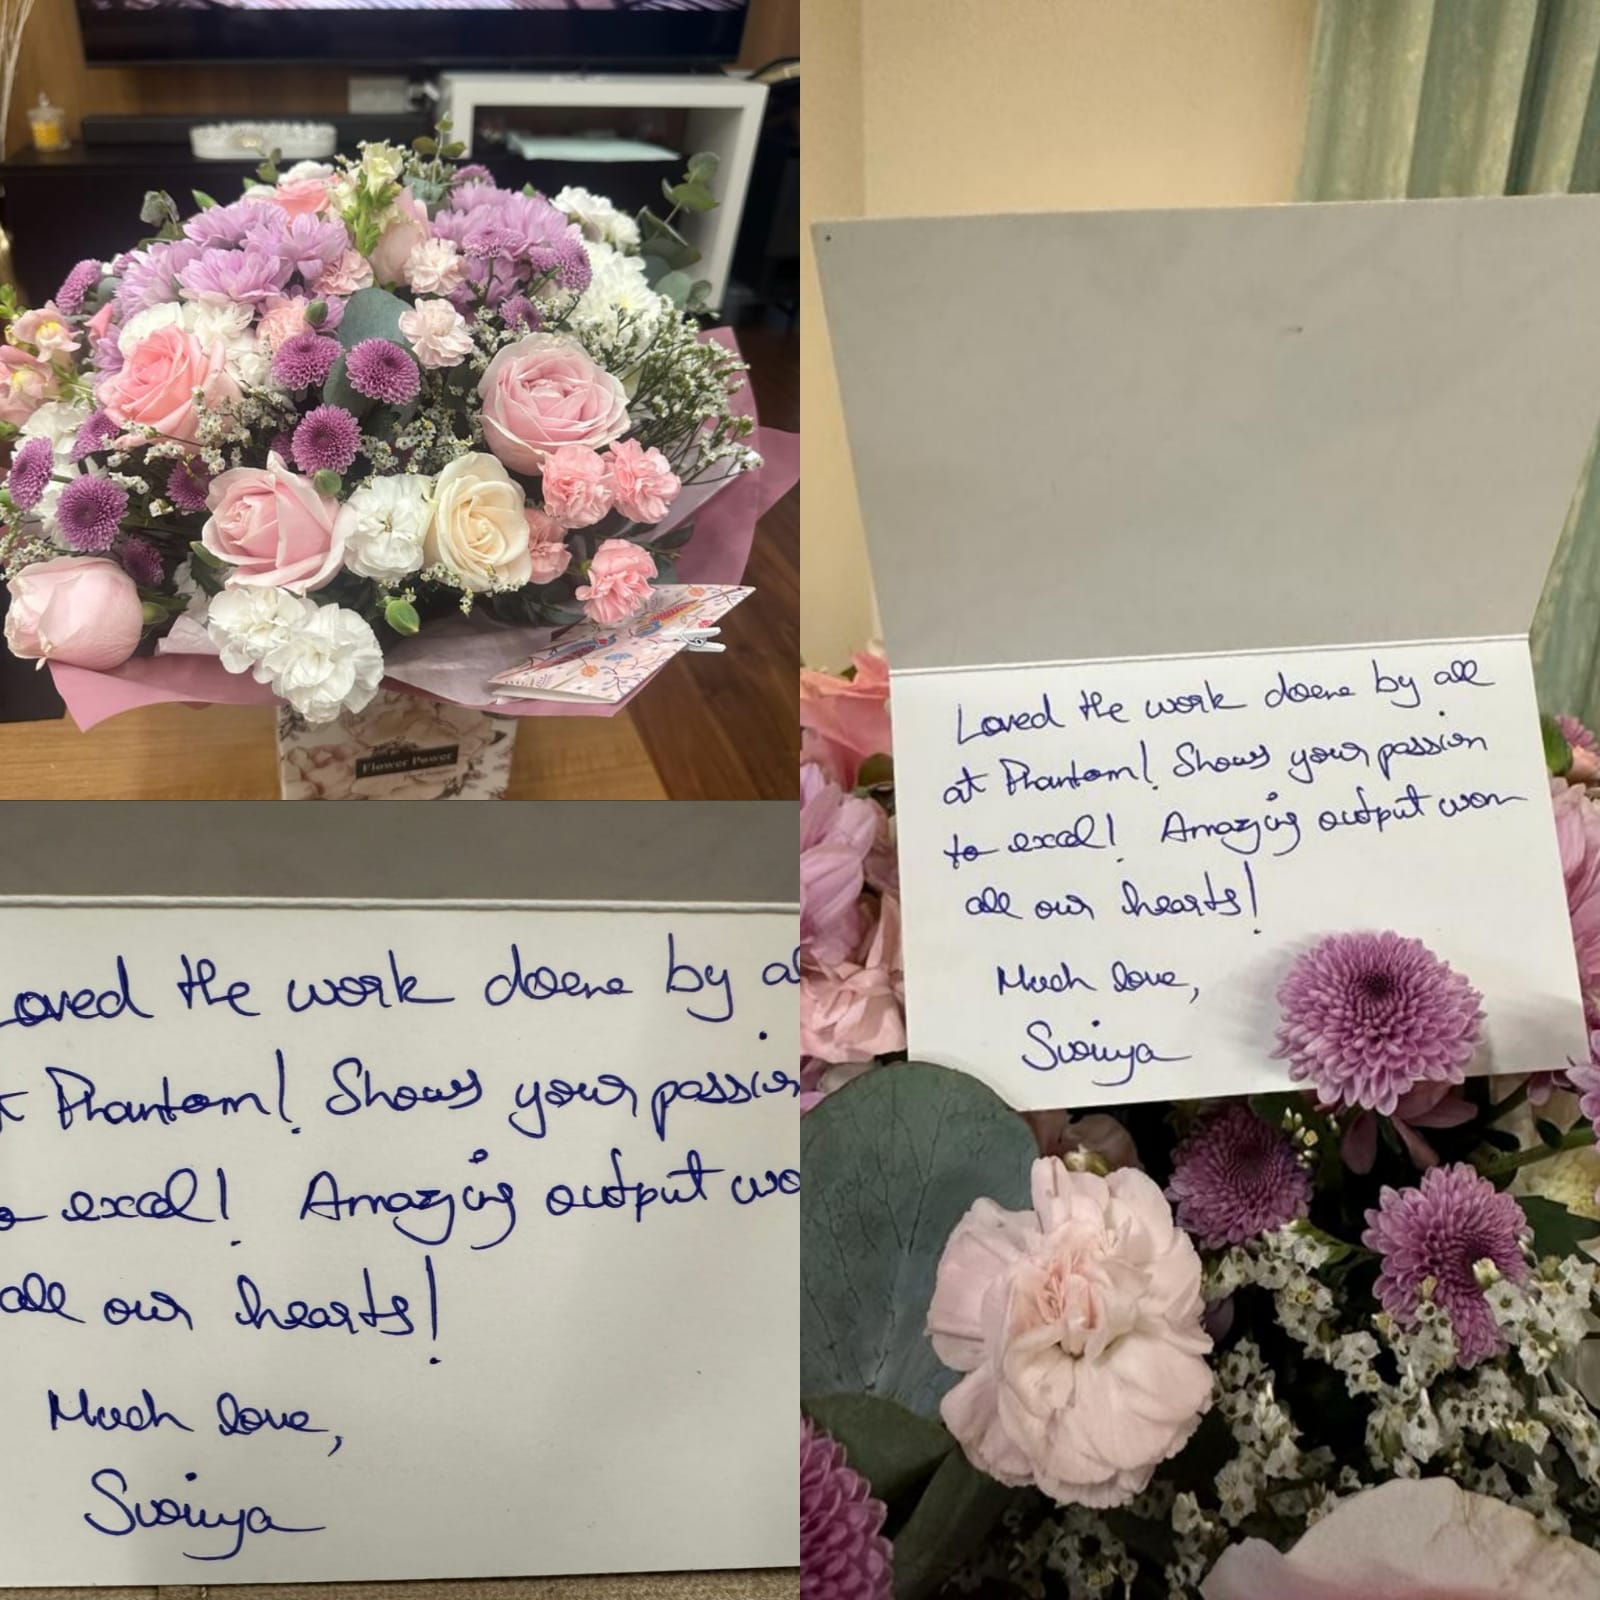 Flower Power
Loved the work done by all
at Phantom! Shows your passion
to excel! Amazing output won
all our hearts!
Much love,
Loved the work done by
Phantom! Shows your passion
excel! Amazing output
all our hearts!
Much love,